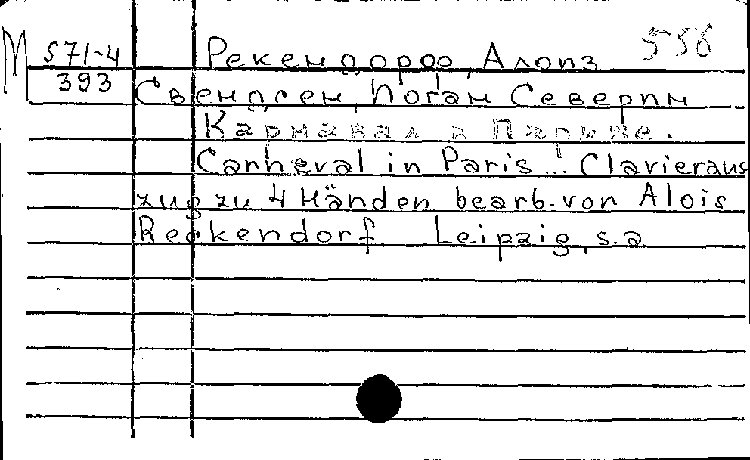 М 571-4 Рекендорф, Алоиз 556
393 Свендсен, Йоган Северин
Карнавал в Париже.
Carneval in Paris... Clavieraus
zug zu 4 Händen bearb. von Alois
Reckendorf Leipzig, s.a